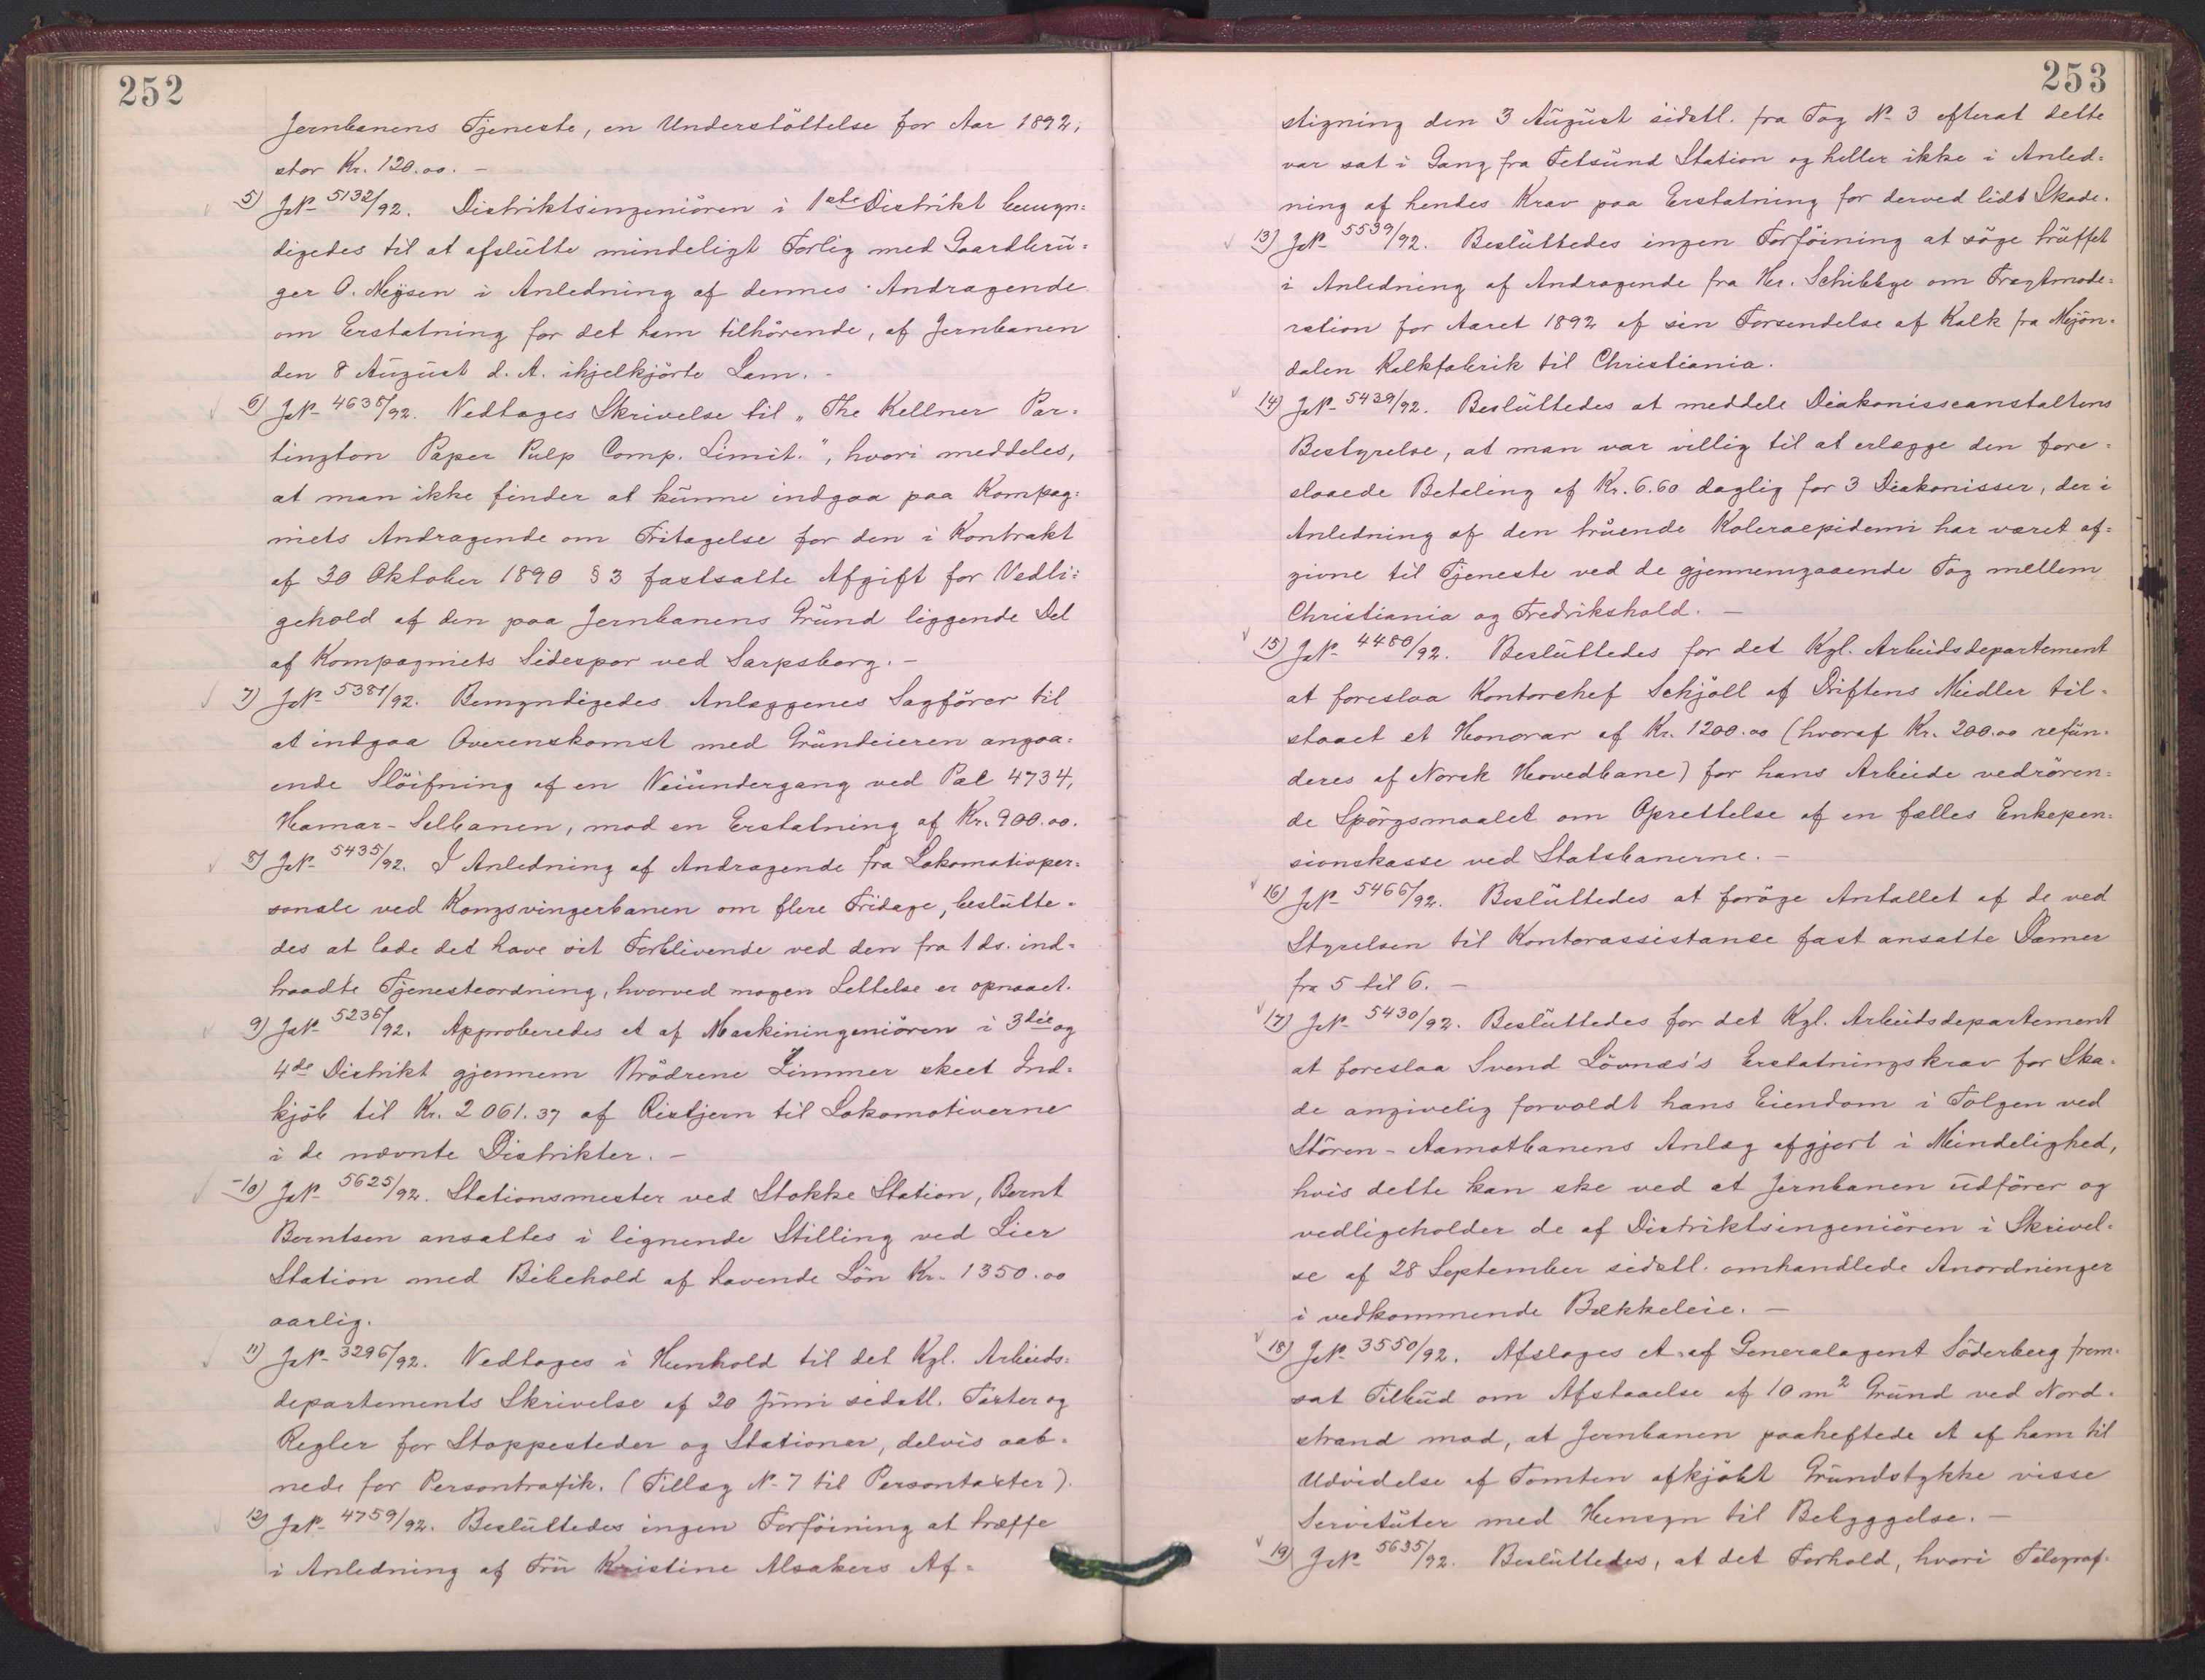 252
Jernbanens Tjeneste, en Understöttelse for Aar 1892,
stor Kr. 120.00. -
5) J.№ 5132/92. Distriktsingeniören i 1ste Distrikt bemyn=
digedes til at afslutte mindeligt Forlig med Gaardbru=
ger O. Mysen i Anledning af dennes Andragende
om Erstatning for det ham tilhörende, af Jernbanen
den 8 August d. A. ihjelkjörte Lam. -
6) J.№ 4635/92. Vedtages Skrivelse til „The Kellner Par=
tington Paper Pulp Comp. Limit.", hvori meddeles,
at man ikke finder at kunne indgaa paa Kompag=
niets Andragende om Fritagelse for den i Kontrakt
af 30 Oktober 1890 § 3 fastsatte Afgift for Vedli=
gehold af den paa Jernbanens Grund liggende Del
af Kompagniets Sidespor ved Sarpsborg. -
7) J.№ 5381/92. Bemyndigedes Anlæggenes Sagförer til
at indgaa Overenskomst med Grundeieren angaa=
ende Slöifning af en Veiundergang ved Pæl 4734,
Hamar-Selbanen, mod en Erstatning af Kr. 900.00.
8) J.№ 5435/92. I Anledning af Andragende fra Lokomotivper=
sonale ved Kongsvingerbanen om flere Fridage, beslutte=
des at lade det have sit Forblivende ved den fra 1 ds. ind=
traadte Tjenesteordning, hvorved nogen Lettelse er opnaaet.
9) J.№ 5236/92. Approberedes et af Maskiningeniören i 3die og
4de Distrikt gjennem Brödrene Zimmer skeet Ind=
kjöb til Kr. 2 061.37 af Ristjern til Lokomotiverne
i de nævnte Distrikter. -
-10) J.№ 5625/92. Stationsmester ved Stokke Station, Bernt
Berntsen ansattes i lignende Stilling ved Lier
Station med Bibehold af havende Lön Kr. 1350.00
aarlig.
11) J.№ 3296/92. Vedtoges i Henhold til det Kgl. Arbeids=
departements Skrivelse af 20 Juni sidstl. Taxter og
Regler for Stoppesteder og Stationer, delvis aab=
nede for Persontrafik. (Tillæg № 7 til Persontaxter).
12) J.№ 4759/92. Besluttedes ingen Forföining at træffe
i Anledning af Fru Kristine Alsakers Af=
253
stigning den 3 August sidstl. fra Tog № 3 efterat dette
var sat i Gang fra Fetsund Station og heller ikke i Anled=
ning af hendes Krav paa Erstatning for derved lidt Skade.
13) J.№ 5539/92. Besluttedes ingen Forföining at söge truffet
i Anledning af Andragende fra Hr. Schibbye om Fragtmode=
ration for Aaret 1892 af sin Forsendelse af Kalk fra Mjön=
dalen Kalkfabrik til Christiania.
14) J.№ 5439/92. Besluttedes at meddele Diakonisseanstaltens
Bestyrelse, at man var villig til at erlægge den fore=
slaaede Betaling af Kr. 6.60 daglig for 3 Diakonisser, der i
Anledning af den truende Koleraepidemi har været af=
givne til Tjeneste ved de gjennemgaaende Tog mellem
Christiania og Fredrikshald. -
15) J.№ 4480/92. Besluttedes for det Kgl. Arbeidsdepartement
at foreslaa Kontorchef Schjöll af Driftens Midler til=
staaet et Honorar af Kr. 1200.00 (hvoraf Kr. 200.00 refun=
deres af Norsk Hovedbane) for hans Arbeide vedrören=
de Spörgsmaalet om Oprettelse af en fælles Enkepen=
sionskasse ved Statsbanerne. -
16) J.№ 5466/92. Besluttedes at foröge Antallet af de ved
Styrelsen til Kontorassistanse fast ansatte Damer
fra 5 til 6. -
17) J.№ 5430/92. Besluttedes for det Kgl. Arbeidsdepartement
at foreslaa Svend Lövnæs's Erstatningskrav for Ska=
de angivelig forvoldt hans Eiendom i Tolgen ved
Stören-Aamotbanens Anlæg afgjort i Mindelighed,
hvis dette kan ske ved at Jernbanen udförer og
vedligeholder de af Distriktsingeniören i Skrivel=
se af 28 September sidstl. omhandlede Anordninger
i vedkommende Bækkeleie. -
18) J.№ 3550/92. Afslages et af Generalagent Söderberg frem=
sat Tilbud om Afstaaelse af 10 m2 Grund ved Nord=
strand mod, at Jernbanen paaheftede et af ham til
Udvidelse af Tomten afkjöbt Grundstykke visse
Servituter med Hensyn til Bebyggelse. -
19) J.№ 5635/92. Besluttedes, at det Forhold, hvori Telegraf=